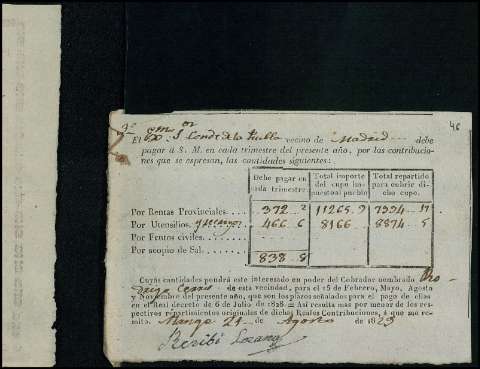 46
El Exmo. Sr. Conde de la Puebla vecino de Madrid debe
pagar á S. M. en cada trimestre del presente año, por las contribucio-
nes que se espresan, las cantidades siguientes:
Debe pagar en cada trimestre. Total importe del cupo impuesto al pueblo Total repartido para cubrir dicho cupo.
Por Rentas Provinciales.... 372.. 2 11265.9 7334..17
Por Utensilios, y recargo 466..6 8166.. 8874..5
Por Frutos civiles....
Por acopio de Sal....
838..8
Cuyas cantidades pondrá este interesado en poder del Cobrador nombrado
de esta vecindad, para el 15 de Febrero, Mayo, Agosto
y Noviembre del presente año, que son los plazos señalados para el pago de ellas
en el Real decreto de 6 de Julio de 1828. = Asi resulta mas por menor de los res-
pectivos repartimientos originales de dichas Reales Contribuciones, á que me re-
mito. de Agosto de 1829
Recibí Lozano